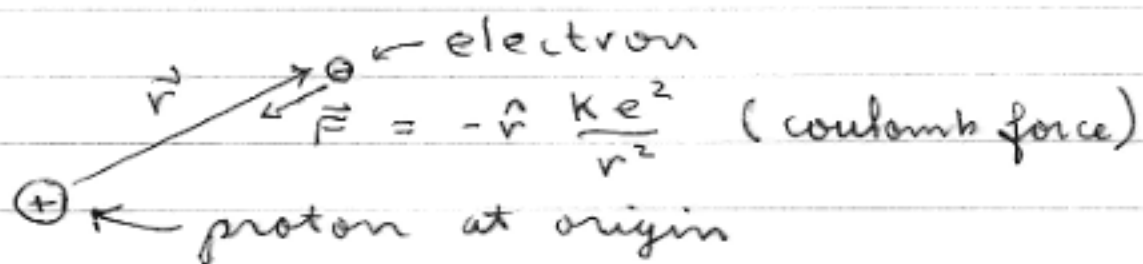 ⊖ ← electron
r⃗
F⃗ = - r̂ ke²/r² (coulomb force)
⊕ ← proton at origin